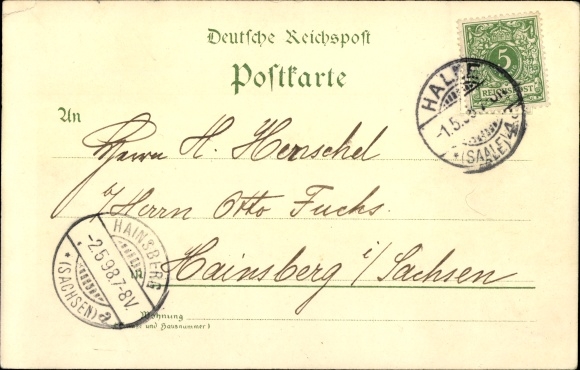 Deutsche Reichspost
Postkarte
5
REICHSPOST
HALLE
-1.5.98
*(SAALE)*4
An
Herrn H. Henschel
Herrn Otto Fuchs.
in
Hainsberg i/Sachsen
HAINSBERG
-2.5.98.7-8V.
*(SACHSEN) a
Wohnung
(Straße und Hausnummer)